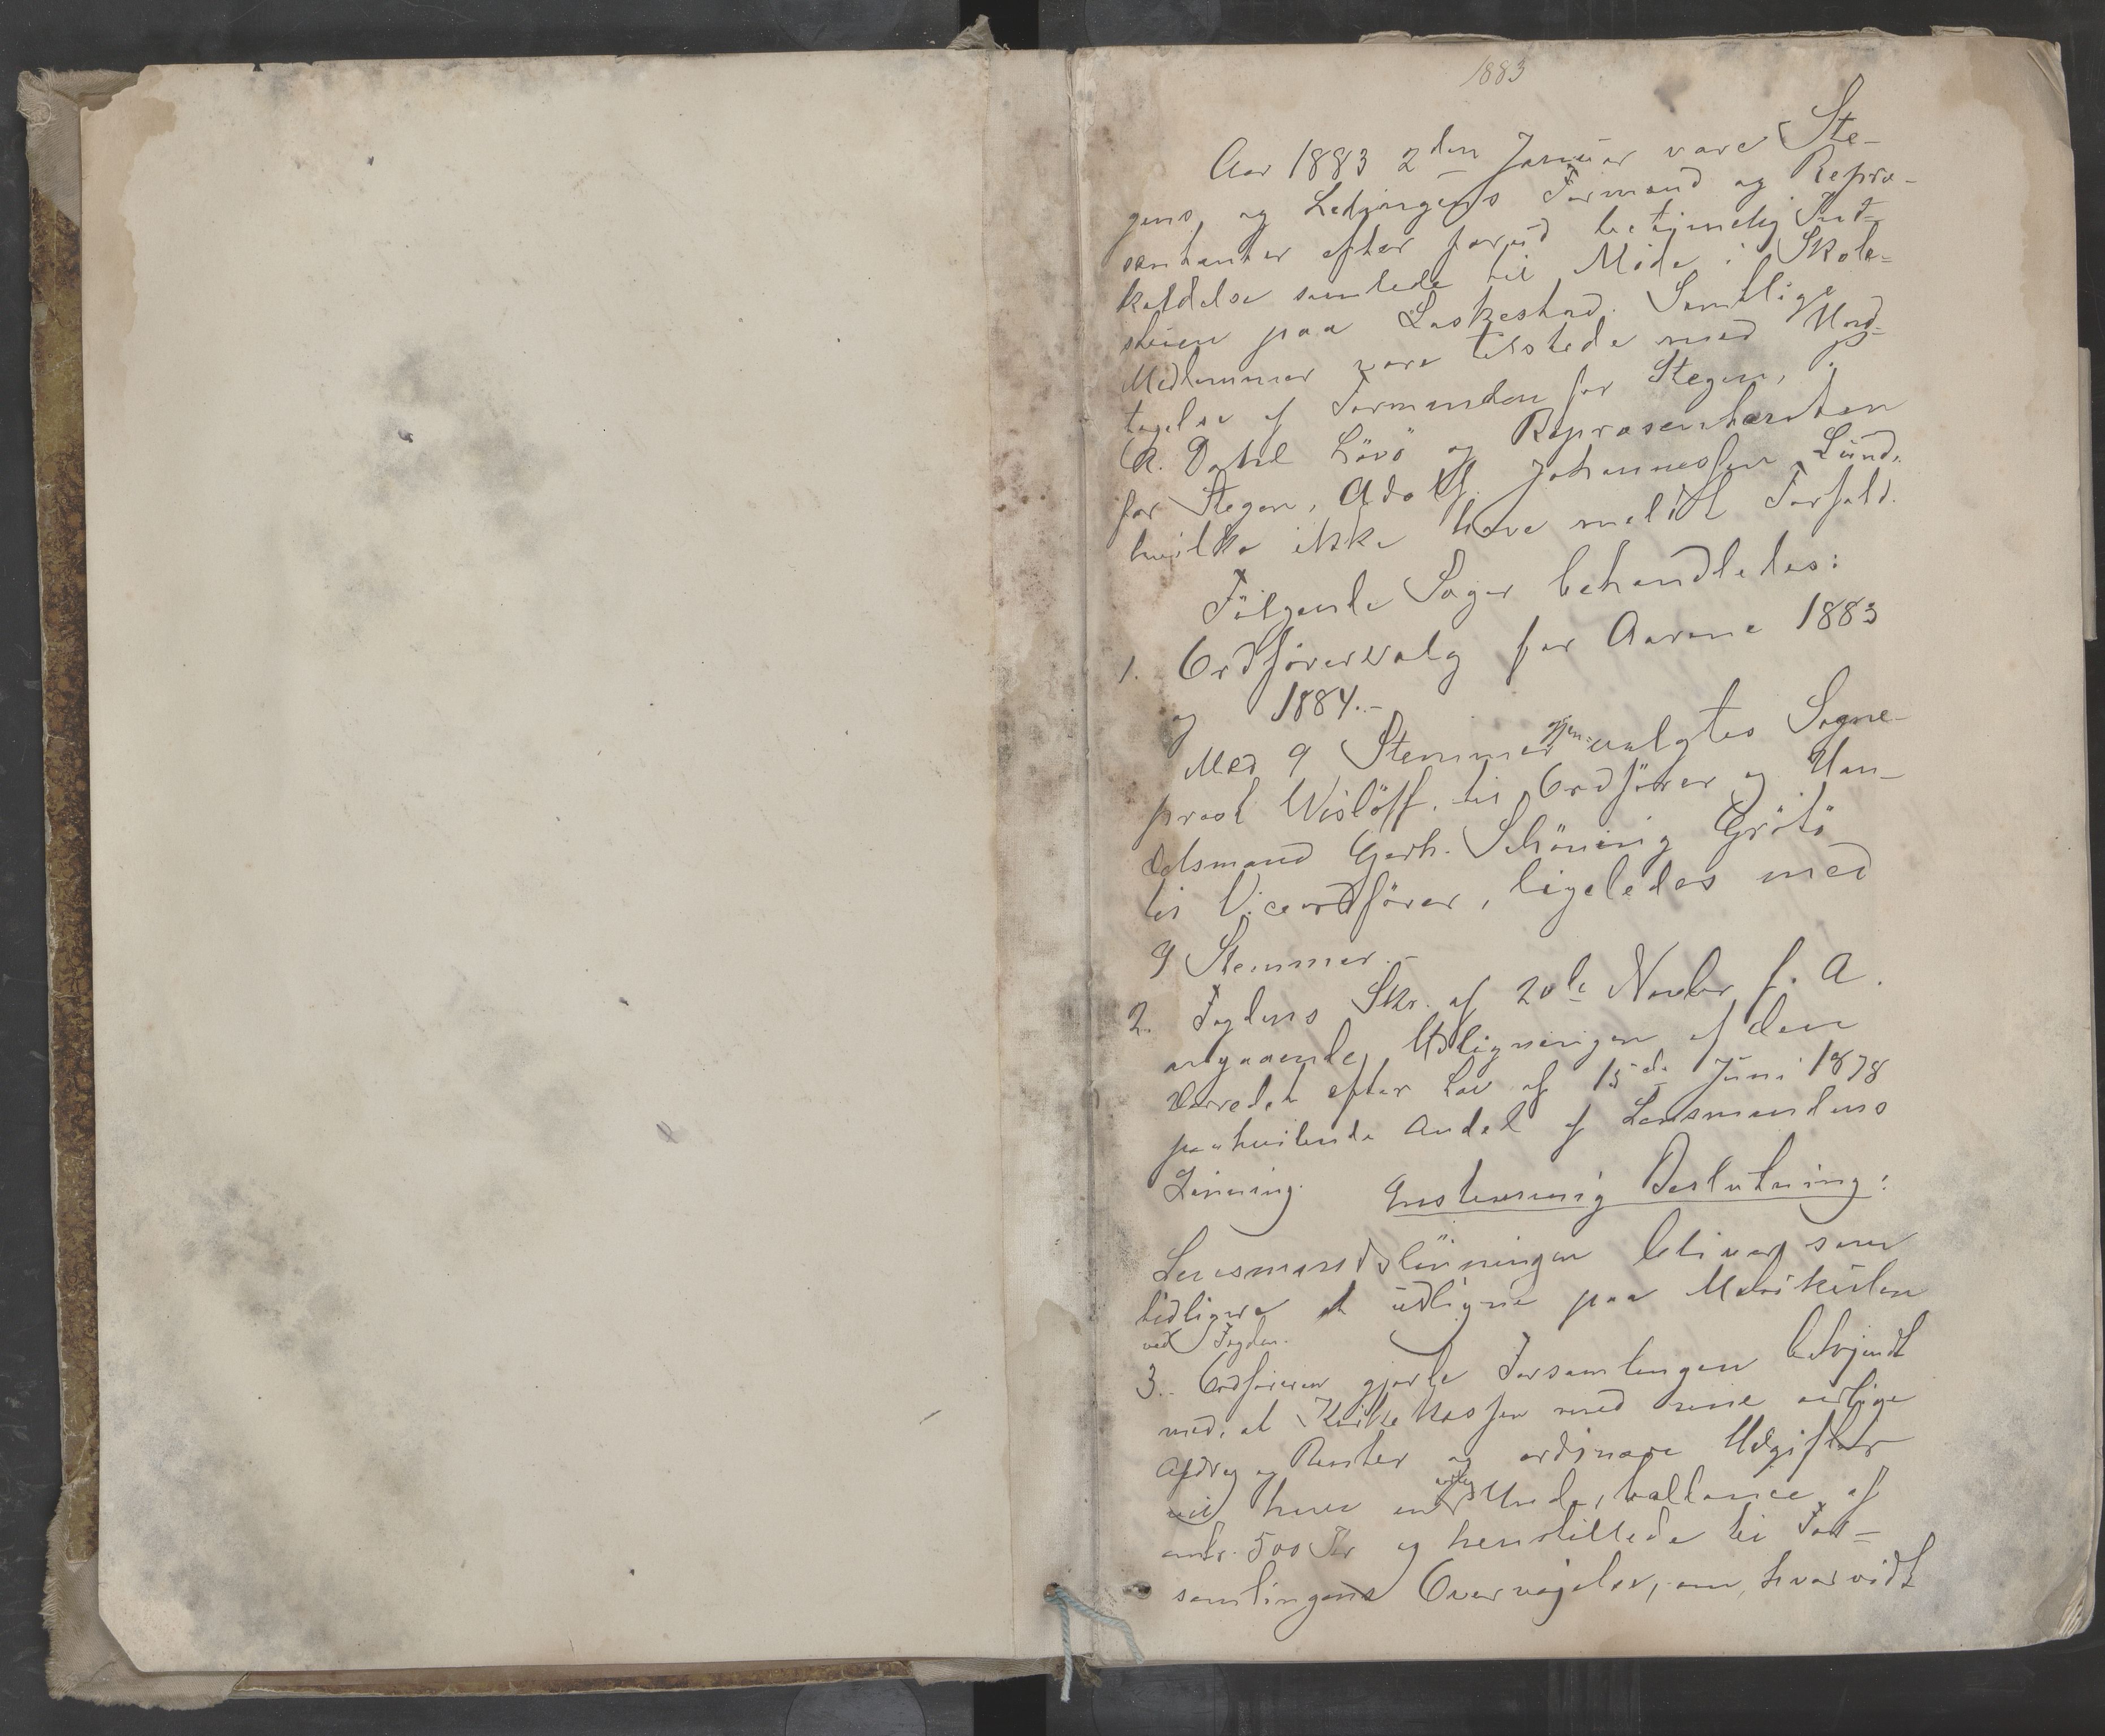 1883
Aar 1883 2den Januar vare Ste-
gens og Ledingens Formænd og Repræ-
sentanter efter forud betimelig Ind-
kaldelse samlede til Møde i Skole-
stuen paa Laskestad. Samtlige
Medlemmer vare tilstede med Und-
tagelse af Formanden for Stegen,
A. Dahl Løvö og Repræsentanten
for Stegen, Adolf Johannessen Lund,
hvilke ikke have meldt Forfald.
Fölgende Sager behandledes:
1. Ordförervalg for Aarene 1883
og 1884.-
Med 9 Stemmer gjen-valgtes Sogne-
prest Wislöff til Ordförer og Han-
delsmand Gerh. Schöning Grötö
til Viceordförer, ligeledes med
9 Stemmer.-
2. Fogdens Skr. af 20de Novbr f. A.
angaaende Udligningen af den
Herredet efter Lov af 15de Juni 1878
paahvilende Andel af Lensmandens
Lönning. Enstemmig Beslutning:
Lensmandslönningen bliver som
tidligere at udligne paa Matrikulen
ved Fogden.
3. Ordföreren gjorde Forsamlingen bekjendt
med, at Kirkekassen med sine aarlige
Afdrag og Renter og ordinære Udgifter
vil have en aarlig Underballance af
omtr. 500 Kr og henstillede til For-
samlingens Overvejelse, om hvorvidt